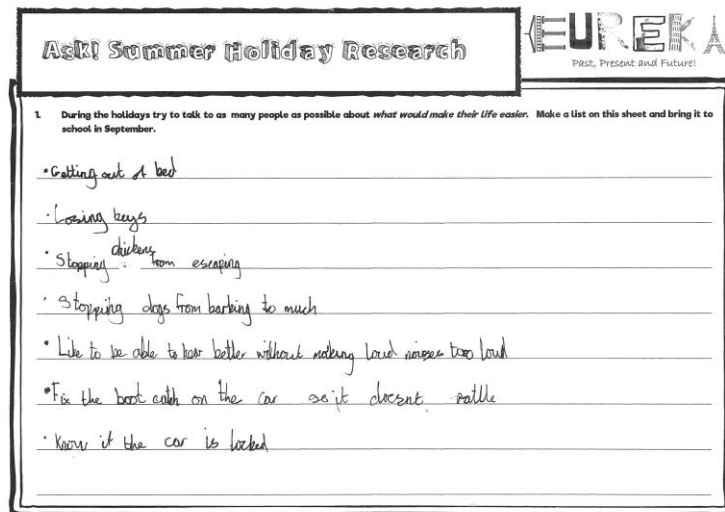 Ask! Summer Holiday Research
EUREKA
Past, Present and Future!
1. During the holidays try to talk to as many people as possible about what would make their life easier. Make a list on this sheet and bring it to
school in September.
• Getting out of bed
• Losing keys
• Stopping chickens from escaping
• Stopping dogs from barking to much
• Like to be able to hear better without making loud noises too loud
• Fix the boot catch on the car so it doesnt rattle
• Know if the car is locked